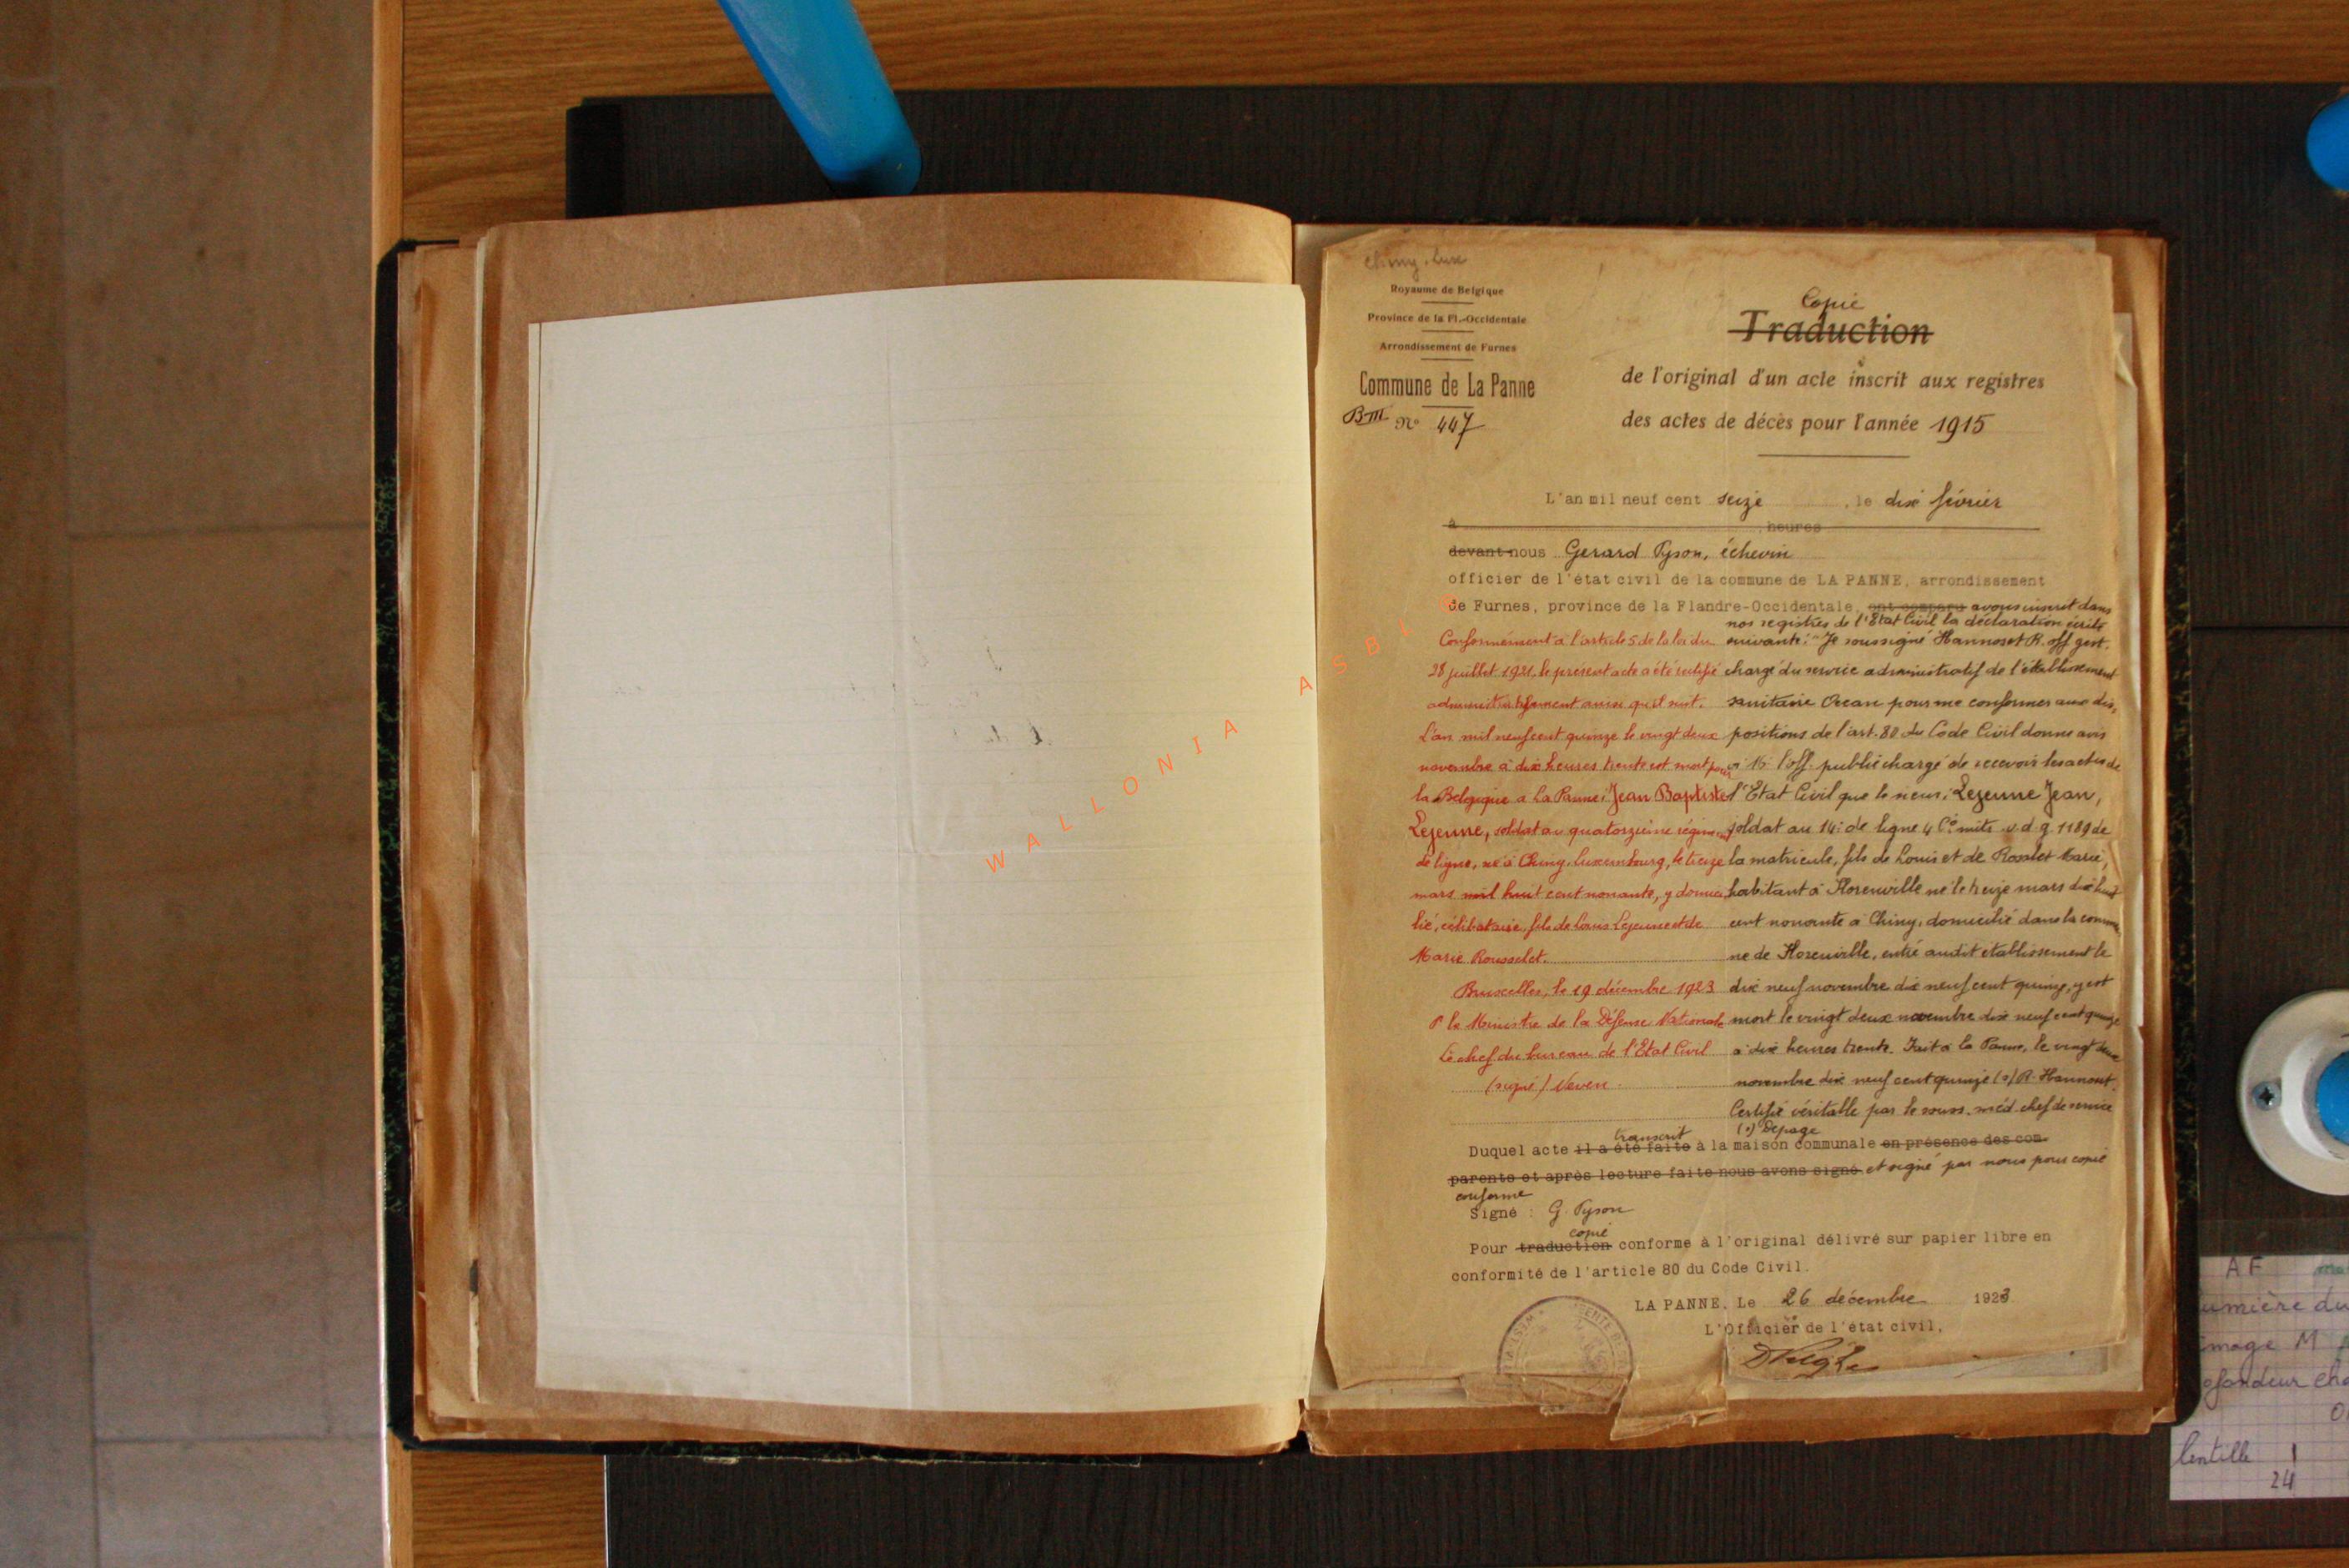 Chiny. Lux
Royaume de Belgique
Province de la Fl.-Occidentale
Arrondissement de Furnes
Commune de La Panne
BM No 447
Copie
Traduction
de l'original d'un acte inscrit aux registres
des actes de décès pour l'année 1915
L'an mil neuf cent seize, le dix février
à heures
devant nous Gerard Pyson, échevin
officier de l'état civil de la commune de LA PANNE, arrondissement
de Furnes, province de la Flandre-Occidentale, ont comparu avons inscrit dans
nos registres de l'Etat Civil la déclaration écrite
suivante: "Je soussigné Hannoset R. off. gest.
chargé du service administratif de l'établissement
sanitaire Océan pour me conformer aux dis-
positions de l'art. 80 du Code Civil donne avis
à l'off. public chargé de recevoir les actes de
l'Etat Civil que le sieur: Lejeune Jean,
soldat au 14e de ligne 4 Cie mits v.d.g. 1189 de
la matricule, fils de Louis et de Rosselet Marie,
habitant à Florenville né le treize mars dix huit
cent nonante à Chiny, domicilié dans la commu-
ne de Florenville, entré audit établissement le
dix neuf novembre dix neuf cent quinze, y est
mort le vingt deux novembre dix neuf cent quinze
à dix heures trente. Fait à la Panne, le vingt deux
novembre dix neuf cent quinze (s) R. Hannoset.
Certifié véritable par le souss. méd. chef de service
(s) Depage
Conformément à l'article 5 de la loi du
28 juillet 1921, le présent acte a été rectifié
administrativement ainsi qu'il suit.
L'an mil neuf cent quinze le vingt deux
novembre à dix heures trente est mort pour
la Belgique à La Panne: Jean Baptiste
Lejeune, soldat au quatorzième régiment
de ligne, né à Chiny, Luxembourg, le treize
mars mil huit cent nonante, y domici-
lié, célibataire, fils de Louis Lejeune et de
Marie Rousselet.
Bruxelles, le 19 décembre 1923
Pr le Ministre de la Défense Nationale
Le chef du bureau de l'Etat Civil
(signé) Neven
transcrit
Duquel acte il a été faite à la maison communale en présence des com-
parents et après lecture faite nous avons signé et signé par nous pour copie
conforme
Signé : G. Pyson
copie
Pour traduction conforme à l'original délivré sur papier libre en
conformité de l'article 80 du Code Civil.
LA PANNE, Le 26 décembre 1923
L'Officier de l'état civil,
WALLONIA ASBL
AF
lumière du
image M
profondeur
lentille 1
24